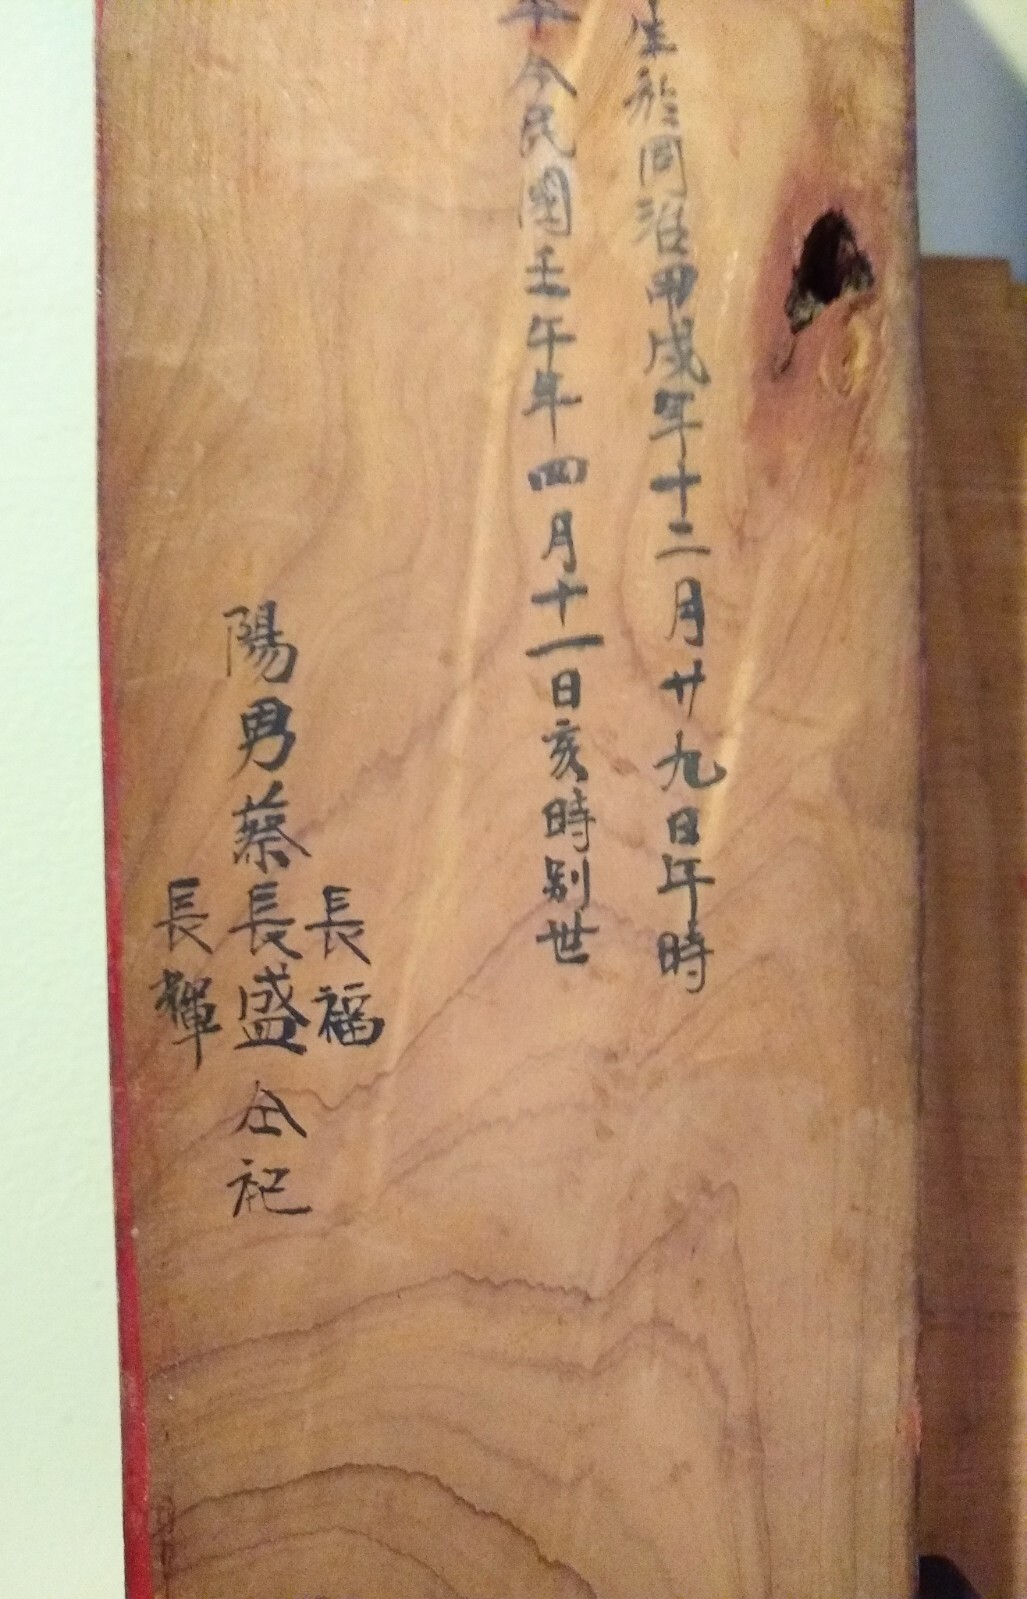 生於同治甲戌年十二月廿九日年時
卒今民國壬午年四月十一日亥時别世
長福
陽男蔡長盛仝祀
長輝